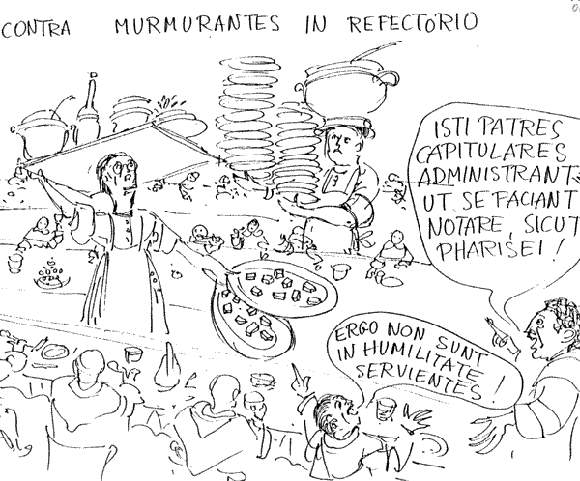 CONTRA MURMURANTES IN REFECTORIO
ISTI PATRES
CAPITULARES
ADMINISTRANT
UT SE FACIANT
NOTARE, SICUT
PHARISEI!
ERGO NON SUNT
IN HUMILITATE
SERVIENTES!